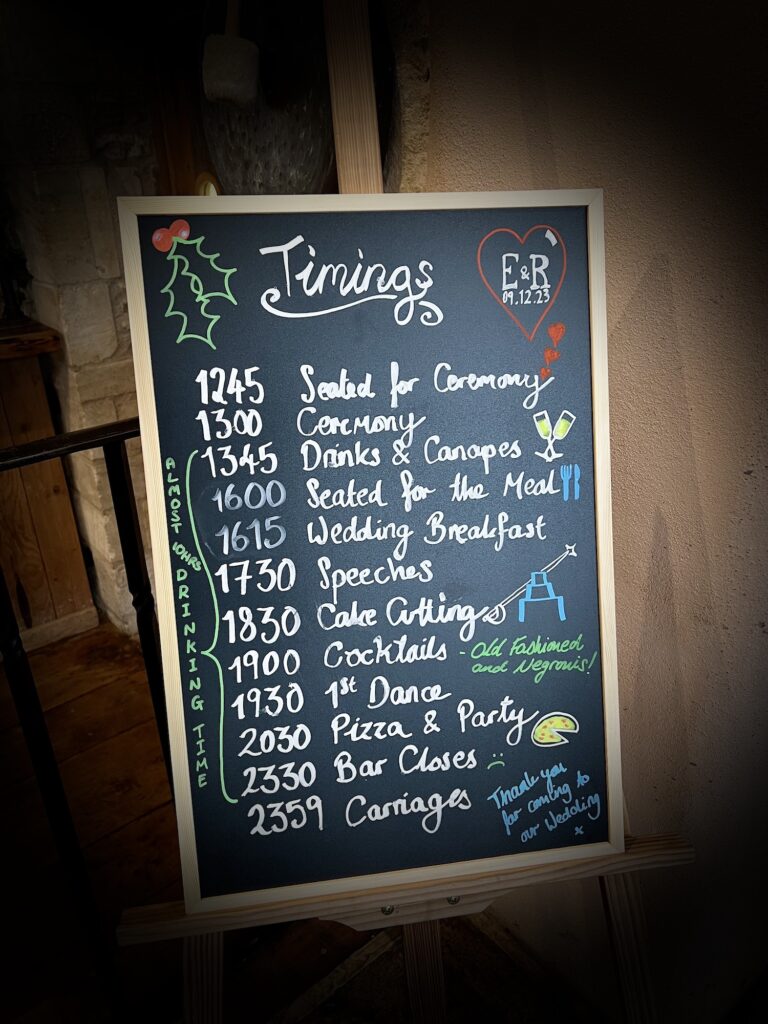 Timings
E & R
09.12.23
1245 Seated for Ceremony
1300 Ceremony
1345 Drinks & Canapes
1600 Seated for the Meal
1615 Wedding Breakfast
1730 Speeches
1830 Cake Cutting
1900 Cocktails - Old Fashioned
and Negronis!
1930 1st Dance
2030 Pizza & Party
2330 Bar Closes :(
2359 Carriages
ALMOST 10HRS DRINKING TIME
Thank you
for coming to
our Wedding
x